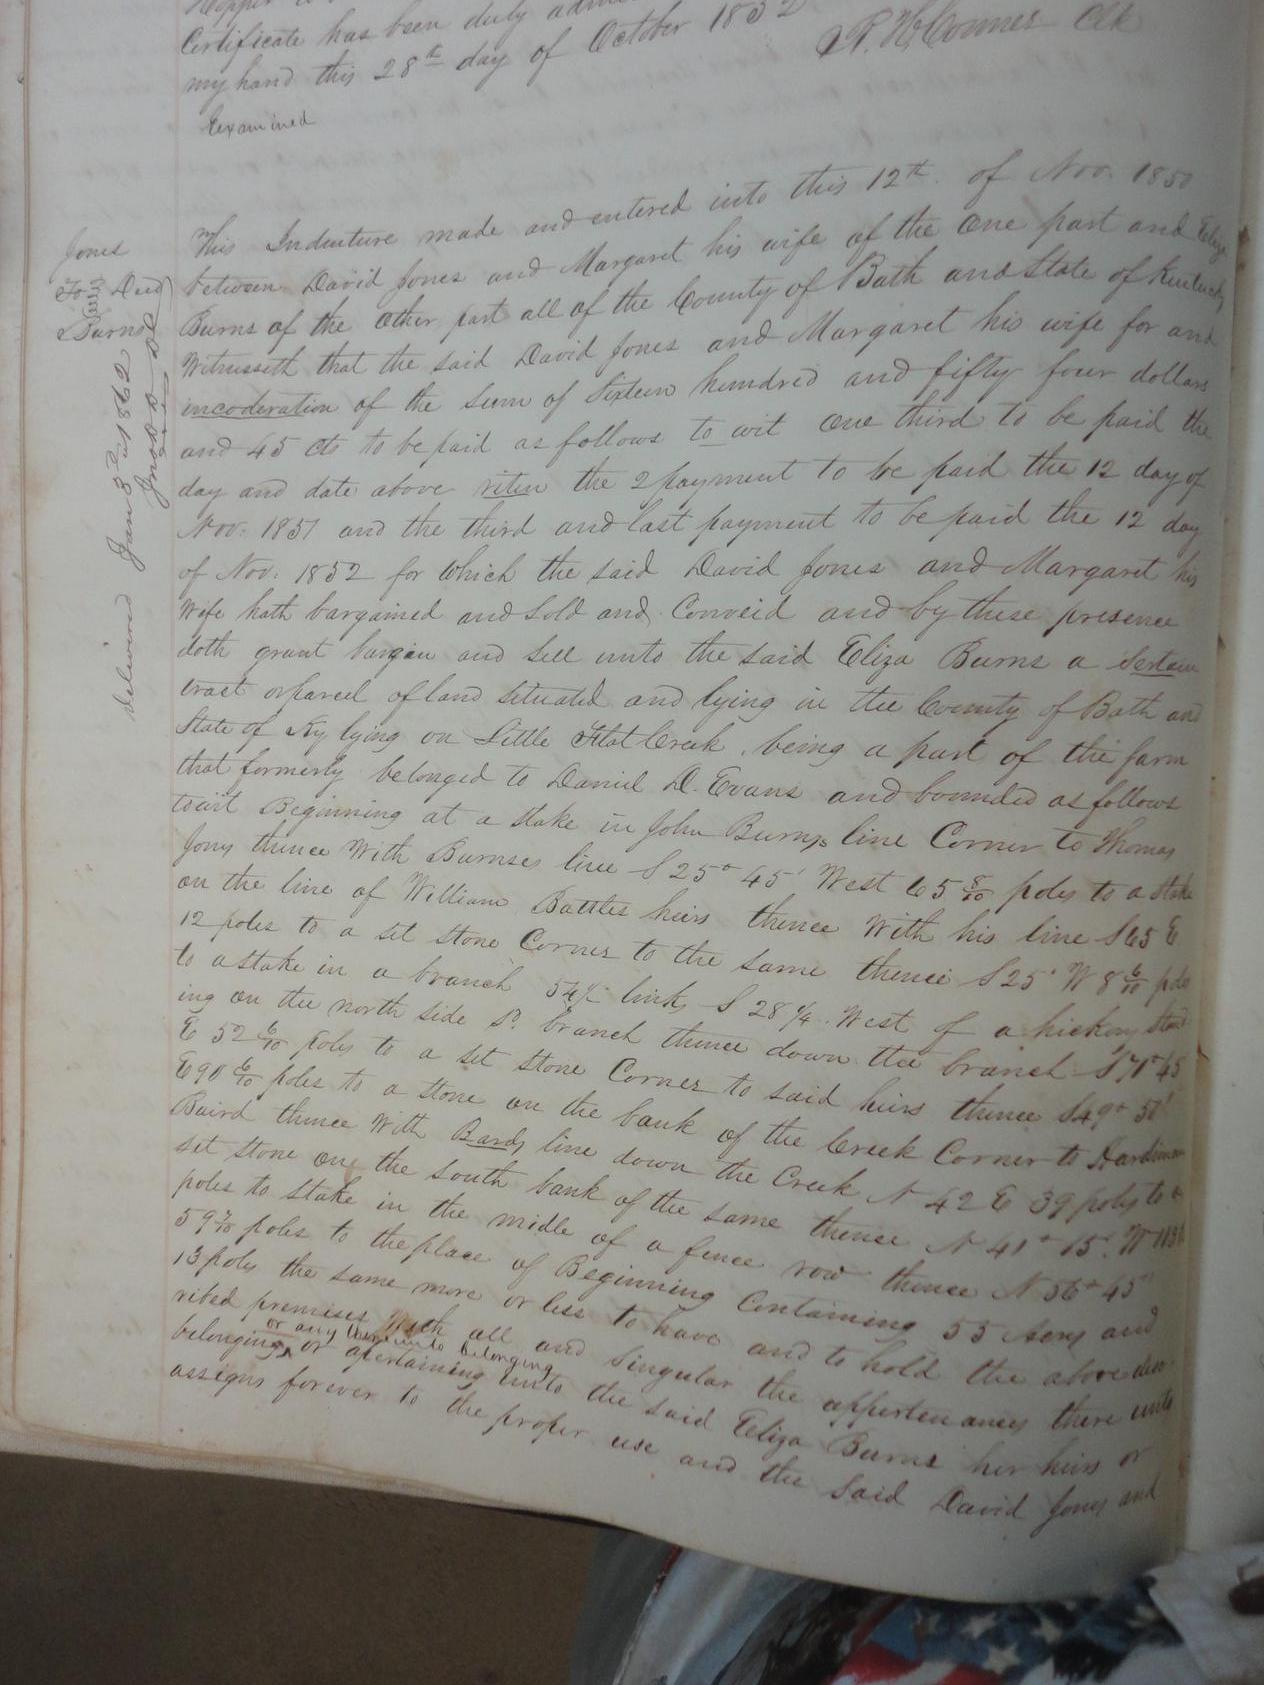 Certificate has been duly
my hand this 28th day of October 1852
Clk
Examined
Jones
To Deed
Burns
delivered Jan 3d 1862
This Indenture made and entered into this 12th of Nov. 1850
between David Jones and Margaret his wife of the one part and Eliza
Burns of the other part all of the County of Bath and State of Kentucky
Witnesseth that the said David Jones and Margaret his wife for and
incoderation of the sum of Sixteen hundred and fifty four dollars
and 45 cts to be paid as follows to wit one third to be paid the
day and date above riten the 2 payment to be paid the 12 day of
Nov. 1851 and the third and last payment to be paid the 12 day
of Nov. 1852 for which the said David Jones and Margaret his
Wife hath bargained and Sold and Conveid and by these presence
doth grant bargain and sell unto the said Eliza Burns a sertain
tract or parcel of land situated and lying in the County of Bath and
State of Ky lying on Little Flat Creek being a part of the farm
that formerly belonged to Daniel D. Evans and bounded as follows
towit Beginning at a stake in John Burns line Corner to Thomas
Jons thence With Burnses line S 25° 45' West 65 8/10 poles to a stake
on the line of William Battles heirs thence With his line S 65 E
12 poles to a set stone Corner to the same thence S 25° W 8 6/10 poles
to a stake in a branch 54½ links S 28¼ West of a hickory stand
ing on the north side sd. branch thence down the branch S 71° 45
E 52 6/10 poles to a set stone Corner to said heirs thence S 49° 50'
E 90 6/10 poles to a stone on the bank of the Creek Corner to
Baird thence With Bards line down the Creek N 42 E 39 poles to a
set stone one the south bank of the same thence N 41° 15' W
poles to stake in the midle of a fence row thence N 56° 45'
59 7/10 poles to the place of Beginning Containing 55 Acres and
13 poles the same more or less to have and to hold the above desc
ribed premises With all and singular the appertenances there unto
or any there unto belonging
belonging or apertaining unto the said Eliza Burns her heirs or
assigns forever to the proper use and the said David Jones and